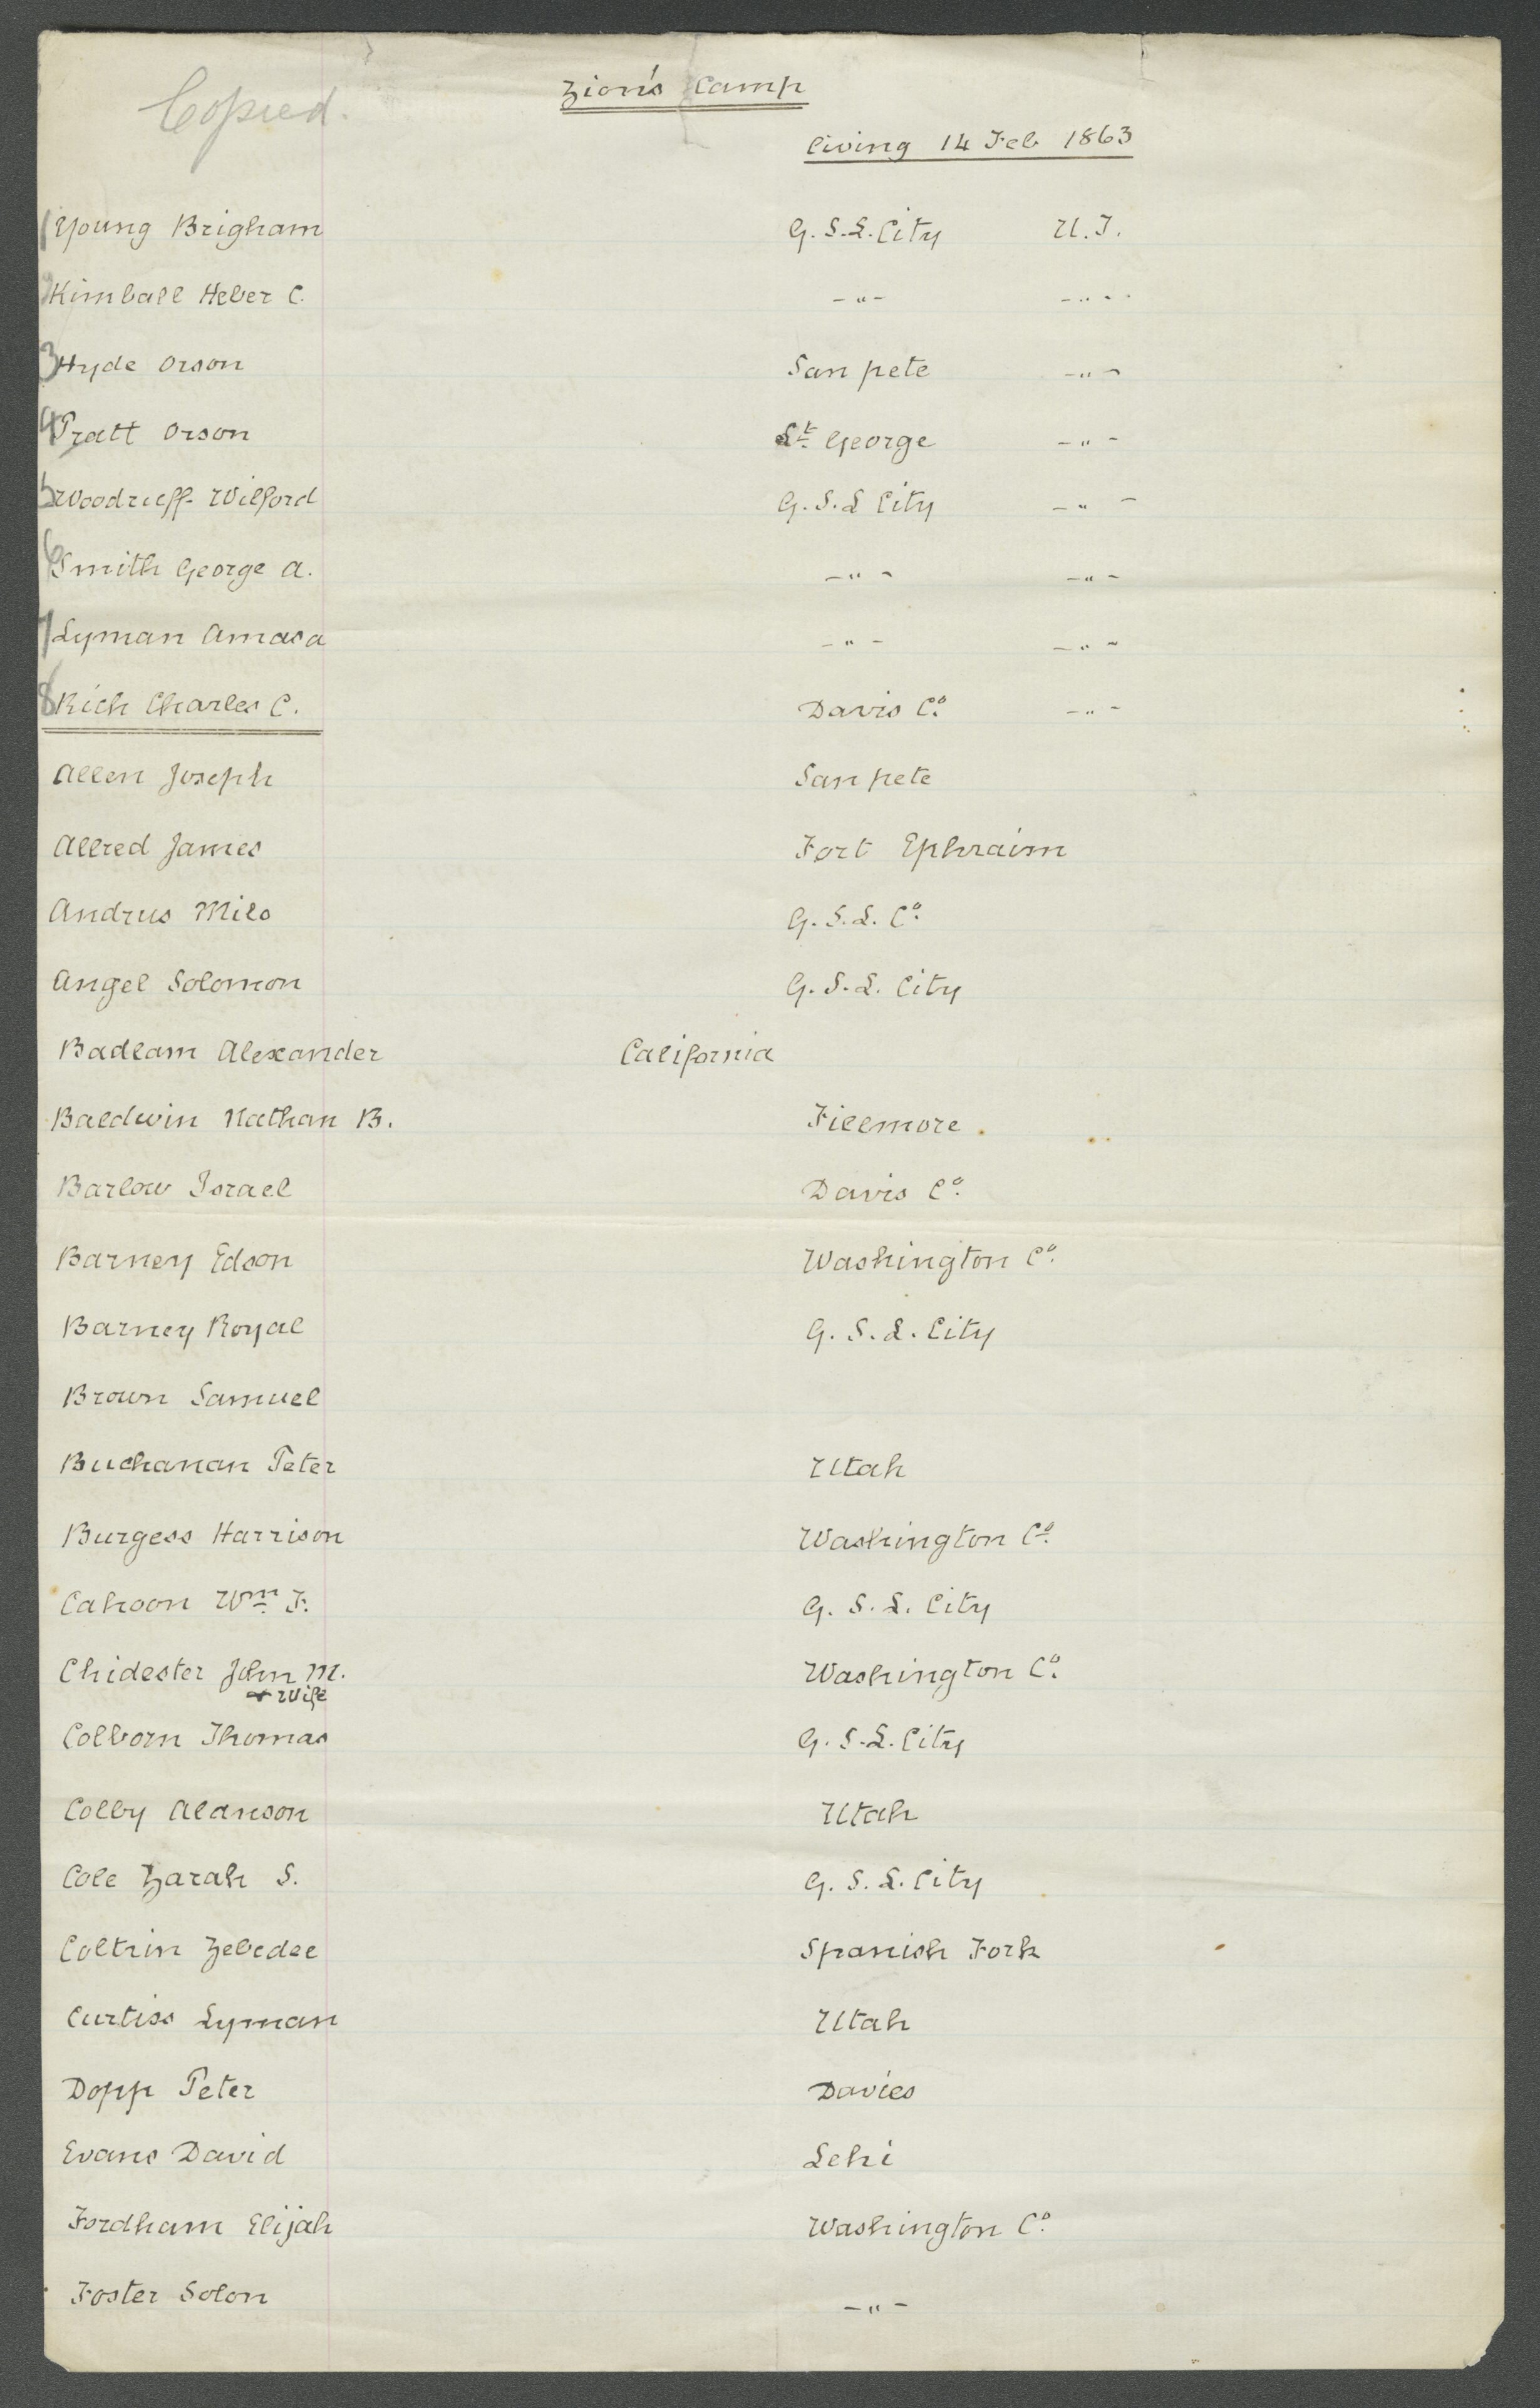 Copied.
Zion's Camp
living 14 Feb 1863
1 Young Brigham G. S. L. City U. T.
2 Kimball Heber C. -"- -"-
3 Hyde Orson San pete -"-
4 Pratt Orson St. George -"-
5 Woodruff Wilford G. S. L City -"-
6 Smith George A. -"- -"-
7 Lyman Amasa -"- -"-
8 Rich Charles C. Davis Co. -"-
Allen Joseph San pete
Allred James Fort Ephraim
Andrus Milo G. S. L. Co.
Angel Solomon G. S. L. City
Badlam Alexander California
Baldwin Nathan B. Fillmore
Barlow Israel Davis Co.
Barney Edson Washington Co.
Barney Royal G. S. L. City
Brown Samuel
Buchanan Peter Utah
Burgess Harrison Washington Co.
Cahoon Wm. F. G. S. L. City
Chidester John M. Washington Co.
& Wife
Colborn Thomas G. S. L. City
Colby Alanson Utah
Cole Zarah S. G. S. L. City
Coltrin Zebedee Spanish Fork
Curtiss Lyman Utah
Dopp Peter Davies
Evans David Lehi
Fordham Elijah Washington Co.
Foster Solon -"-